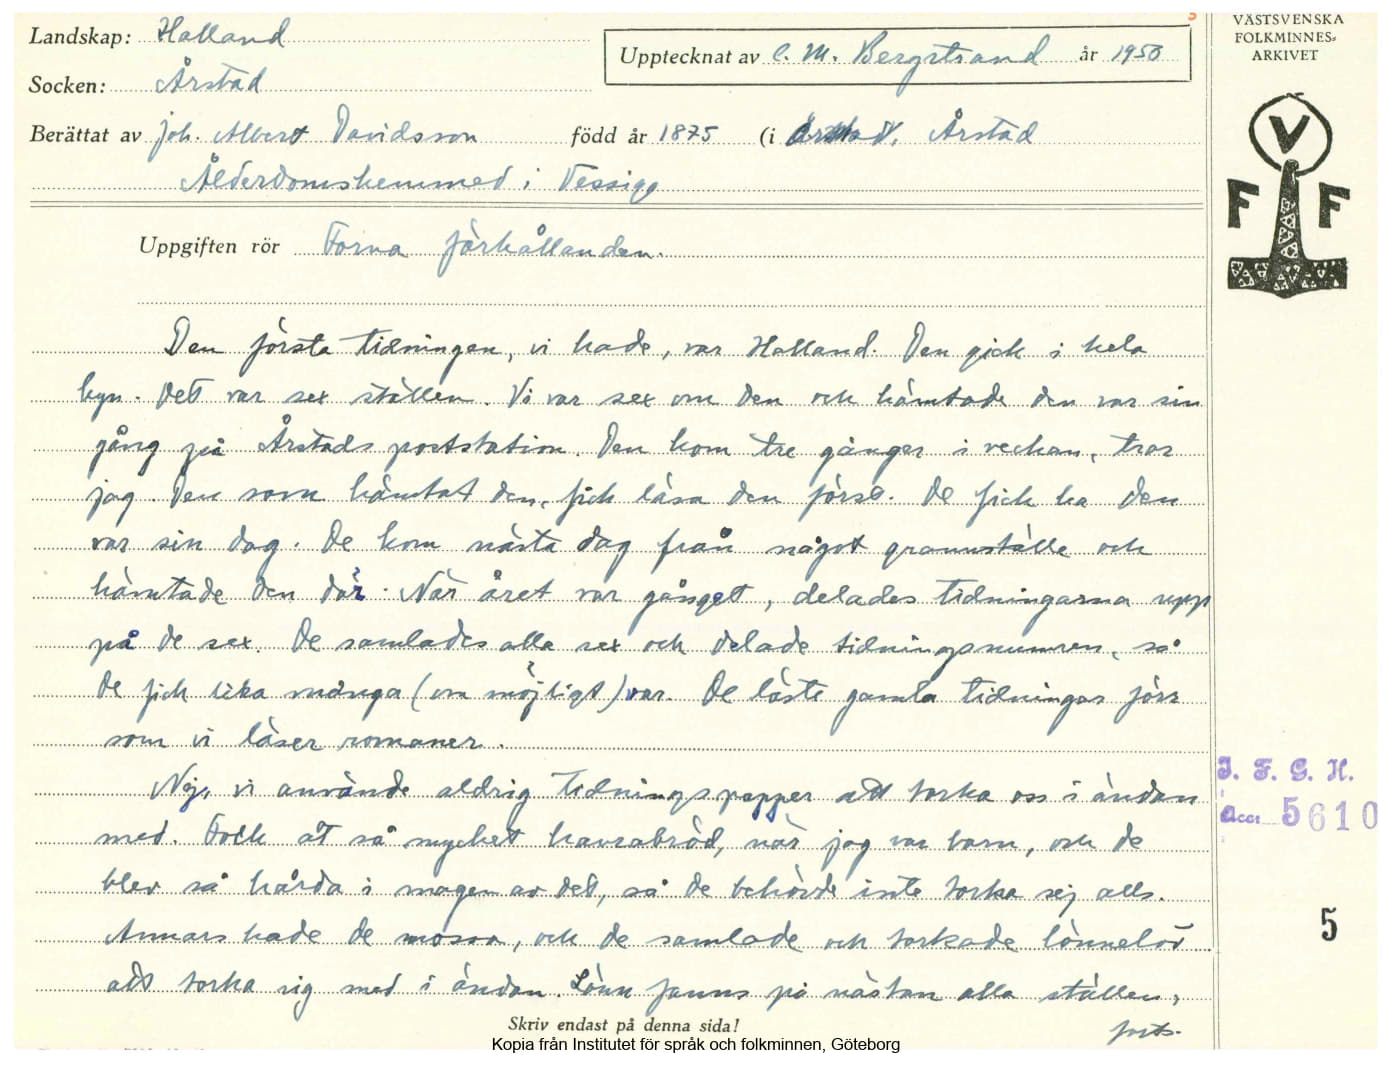 Landskap: Halland
Socken: Årstad
Upptecknat av C. M. Bergstrand år 1950
VÄSTSVENSKA
FOLKMINNES-
ARKIVET
Berättat av Joh. Albert Davidsson född år 1875 (i Årstad
Ålderdomshemmed i Vessige
V
F F
Uppgiften rör Forna förhållanden.
Den första tidningen, vi hade, var Halland. Den gick i hela
byn. Det var sex ställen. Vi var sex om den och hämtade den var sin
gång på Årstads poststation. Den kom tre gånger i veckan, tror
jag. Den som hämtat den, fick läsa den först. De fick ha den
var sin dag. De kom nästa dag från något grannställe och
hämtade den där. När året var gånget, delades tidningarna upp
på de sex. De samlades alla sex och delade tidningsnumren, så
de fick lika många (om möjligt) var. De läste gamla tidningar förr
som vi läser romaner.
Nej, vi använde aldrig tidningspapper att torka oss i ändan
med. Folk åt så mycket havrabröd, när jag var barn, och de
blev så hårda i magen av det, så de behövde inte torka sej alls.
Annars hade de mossa, och de samlade och torkade lönnelöv
att torka sig med i ändan. Lönn fanns på nästan alla ställen,
forts.
I. F. G. H.
Acc. 5610
5
Skriv endast på denna sida!
Kopia från Institutet för språk och folkminnen, Göteborg